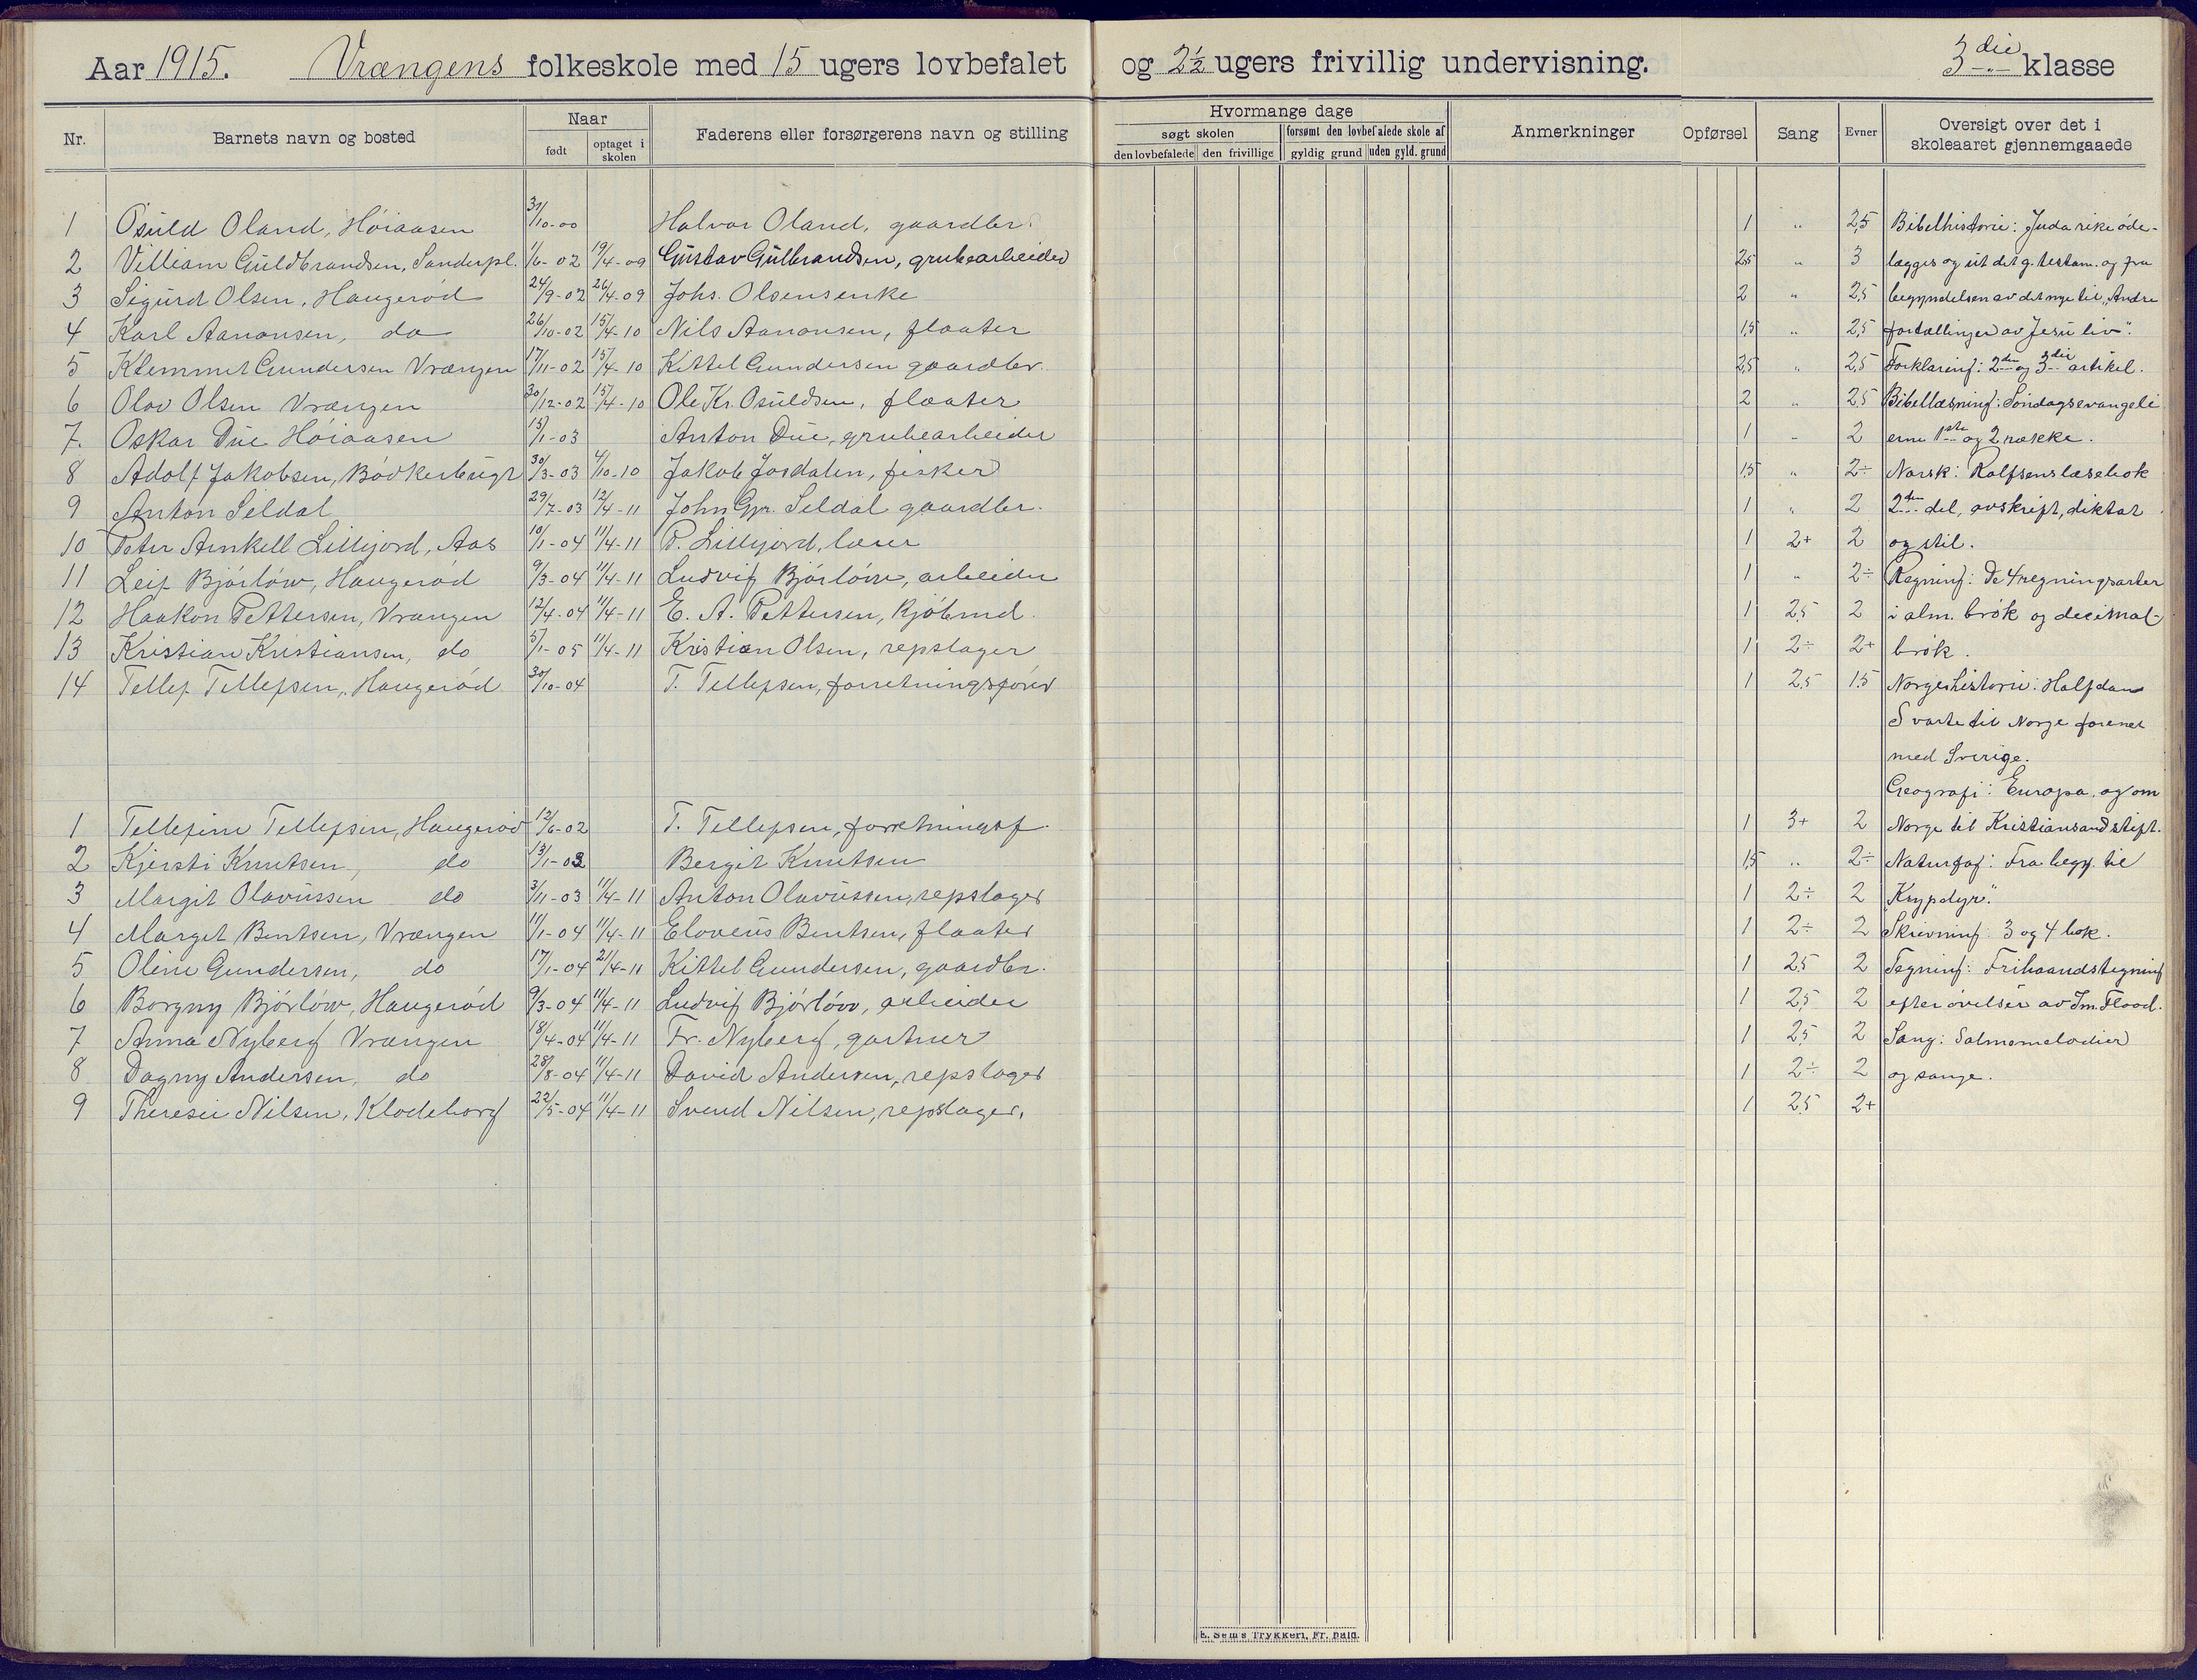 Aar 1915. Vrængens folkeskole med 15 ugers lovbefalet og 2½ ugers frivillig undervisning. 3die klasse
Nr. Barnets navn og bosted Naar født optaget i skolen Faderens eller forsørgerens navn og stilling
Hvormange dage søgt skolen den lovbefalede den frivillige forsømt den lovbefalede skole af gyldig grund uden gyld. grund Anmerkninger Opførsel Sang Evner Oversigt over det i skoleaaret gjennemgaaede
1 Osuld Oland, Høiaasen 31/10-00 Halvor Oland, gaardbr. 1 " 2,5 Bibelhistorie: Juda rike øde-
2 Villiam Guldbrandsen, Sanderpl. 1/6-02 19/4-09 Gustav Gulbrandsen, grubearbeider 2,5 " 3 lægges og ut det g. testam. og fra
3 Sigurd Olsen, Haugerød 24/9-02 26/4-09 Johs. Olsens enke 2 " 2,5 begyndelsen av det nye til "Andre
4 Karl Aanonsen, do 26/10-02 15/4-10 Nils Aanonsen, flaater 1,5 " 2,5 fortællinger av Jesu liv".
5 Klemmet Gundersen Vrængen 17/11-02 15/4-10 Kittel Gundersen gaardbr. 2,5 " 2,5 Forklaring: 2den og 3die artikel.
6 Olav Olsen Vrængen 30/12-02 15/4-10 Ole Kr. Osuldsen, flaater 2 " 2,5 Bibellæsning: Søndagsevangeli
7. Oskar Due Høiaasen 15/1-03 Anton Due, grubearbeider 1 " 2 erne 1ste og 2 række.
8 Adolf Jakobsen, Bødkerbugt 30/3-03 4/10-10 Jakob Josdalen, fisker 1,5 " 2÷ Norsk: Rolfsens læsebok
9 Anton Seldal 29/7-03 12/4-11 John Gr. Seldal gaardbr. 1 " 2 2den del, avskrift, diktat
10 Peter Arnkell Lillejord, Aas 10/1-04 11/4-11 P. Lillejord, lærer 1 2+ 2 og stil.
11 Leif Bjørløw, Haugerød 9/3-04 11/4-11 Ludvig Bjørløw, arbeider 1 " 2÷ Regning: De 4 regningsarter
12 Haakon Pettersen, Vrængen 12/4-04 11/4-11 E. A. Pettersen, kjøbmd. 1 2,5 2 i alm. brøk og decimal-
13 Kristian Kristiansen, do 5/1-05 11/4-11 Kristian Olsen, repslager 1 2÷ 2+ brøk.
14 Tellef Tellefsen, Haugerød 30/10-04 T. Tellefsen, forretningsfører 1 2,5 1,5 Norgeshistorie: Halfdan
Svarte til Norge forenet
med Sverige.
Geografi: Europa, og om
1 Tellefine Tellefsen, Haugerød 12/6-02 T. Tellefsen, forretningsf. 1 3+ 2 Norge til Kristiansand stift.
2 Kjersti Knutsen, do 13/1-03 Bergit Knutsen 1,5 " 2÷ Naturfag: Fra begy. til
3 Margit Olavussen do 3/11-03 11/4-11 Anton Olavussen, repslager 1 2÷ 2 "Krypdyr".
4 Marget Bentsen, Vrængen 11/1-04 11/4-11 Eloveus Bentsen, flaater 1 2÷ 2 Skrivning: 3 og 4 bok.
5 Oline Gundersen, do 17/1-04 21/4-11 Kittel Gundersen, gaardbr. 1 2,5 2 Tegning: Frihaandstegning
6 Borgny Bjørløw, Haugerød 9/3-04 11/4-11 Ludvig Bjørløw, arbeider 1 2,5 2 efter øvelser av Jm. Flood.
7 Anna Nyberg Vrængen 18/4-04 11/4-11 Fr. Nyberg, gartner 1 2,5 2 Sang: Salmemelodier
8 Dagny Andersen, do 28/8-04 11/4-11 David Andersen, repslager 1 2÷ 2 og sange.
9 Theresie Nilsen, Klodeborg 22/5-04 11/4-11 Svend Nilsen, repslager, 1 2,5 2+
E. Sem's Trykkeri, Fr. hald.